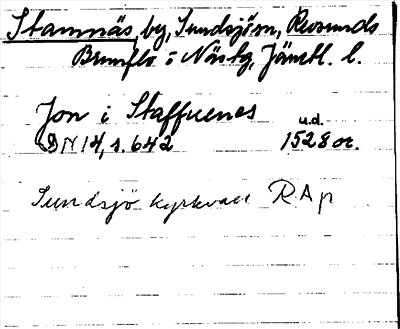 Stamnäs, by, Sundsjö sn, Revsunds
Brunflo o Näs tg, Jämtl. l.
Jon i Staffuenes u.d.
DN 14, s. 642 1528 or.
Sundsjö kyrkvall RAp